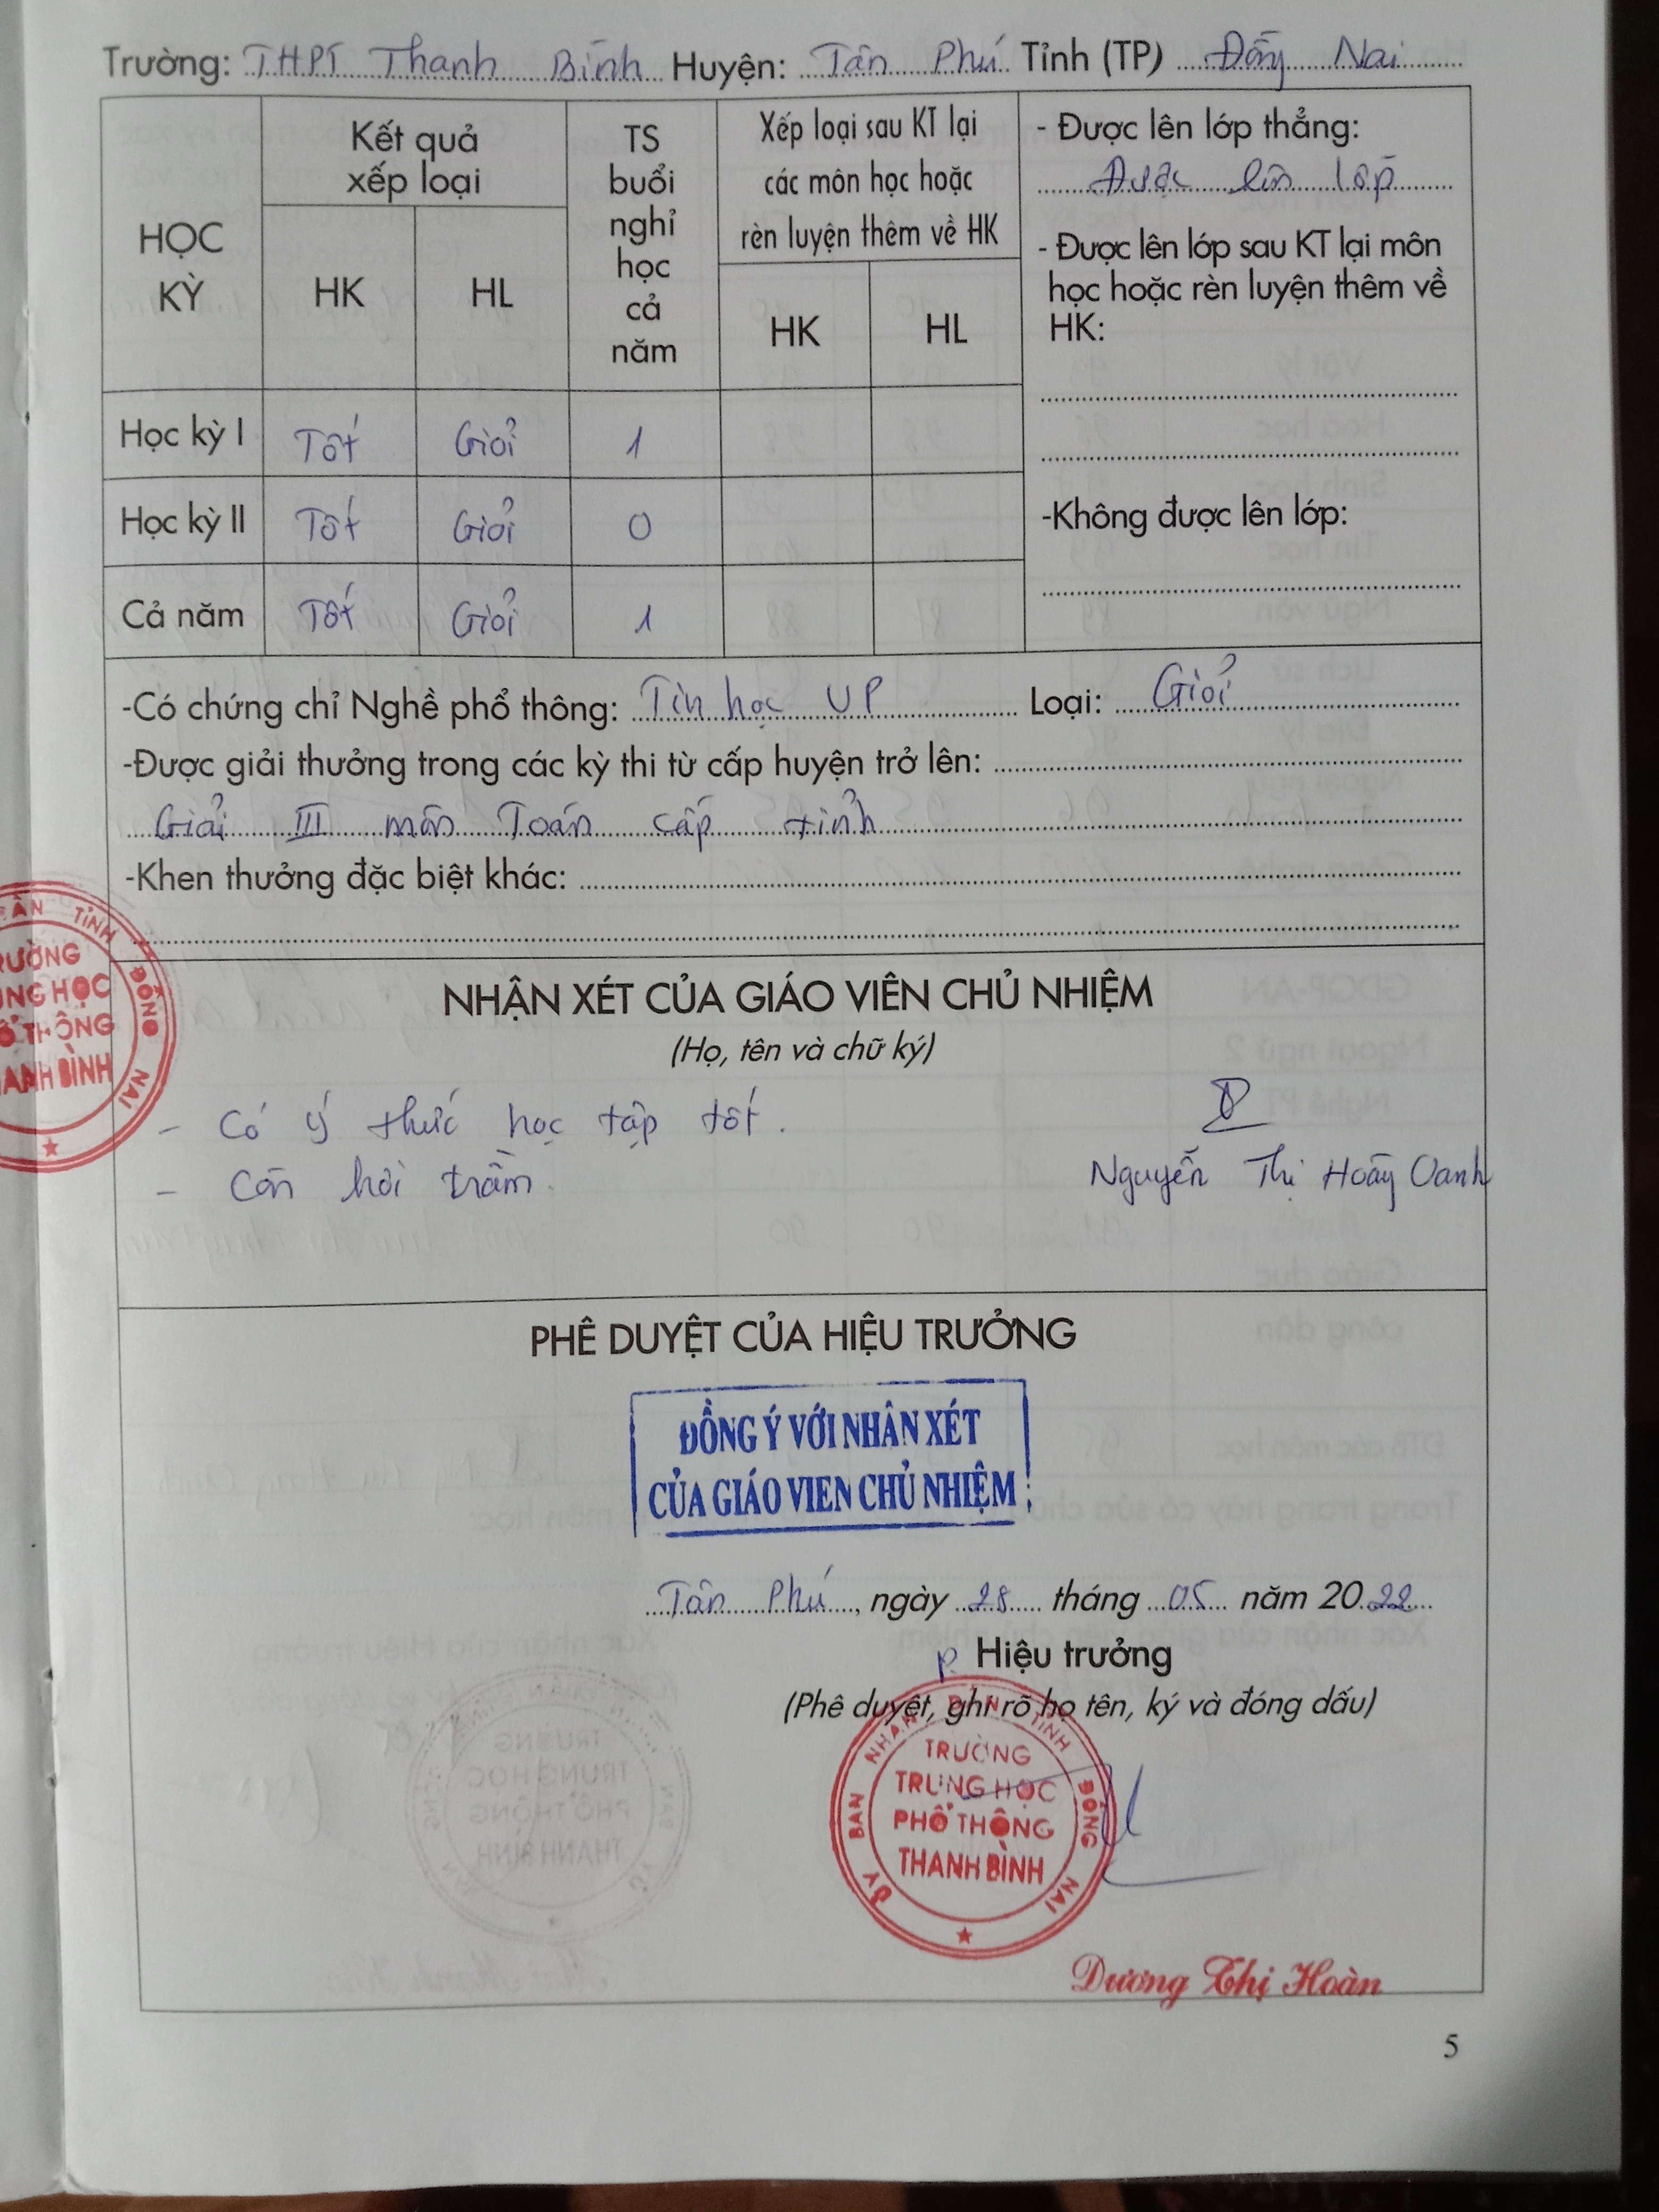 Trường: THPT Thanh Bình Huyện: Tân Phú Tỉnh (TP) Đồng Nai
HỌC KỲ
Kết quả xếp loại
HK
HL
TS buổi nghỉ học cả năm
Xếp loại sau KT lại các môn học hoặc rèn luyện thêm về HK
HK
HL
- Được lên lớp thẳng:
Được lên lớp
- Được lên lớp sau KT lại môn học hoặc rèn luyện thêm về HK:
-Không được lên lớp:
Học kỳ I Tốt Giỏi 1
Học kỳ II Tốt Giỏi 0
Cả năm Tốt Giỏi 1
-Có chứng chỉ Nghề phổ thông: Tin học VP Loại: Giỏi
-Được giải thưởng trong các kỳ thi từ cấp huyện trở lên:
Giải III môn Toán cấp tỉnh
-Khen thưởng đặc biệt khác:
NHẬN XÉT CỦA GIÁO VIÊN CHỦ NHIỆM
(Họ, tên và chữ ký)
- Có ý thức học tập tốt.
- Còn hơi trầm.
Nguyễn Thị Hoàng Oanh
PHÊ DUYỆT CỦA HIỆU TRƯỞNG
ĐỒNG Ý VỚI NHÂN XÉT
CỦA GIÁO VIEN CHỦ NHIỆM
Tân Phú, ngày 28 tháng 05 năm 2022
P. Hiệu trưởng
(Phê duyệt, ghi rõ họ tên, ký và đóng dấu)
ỦY BAN NHÂN DÂN TỈNH ĐỒNG NAI
TRƯỜNG
TRUNG HỌC
PHỔ THÔNG
THANH BÌNH
Dương Thị Hoàn
5